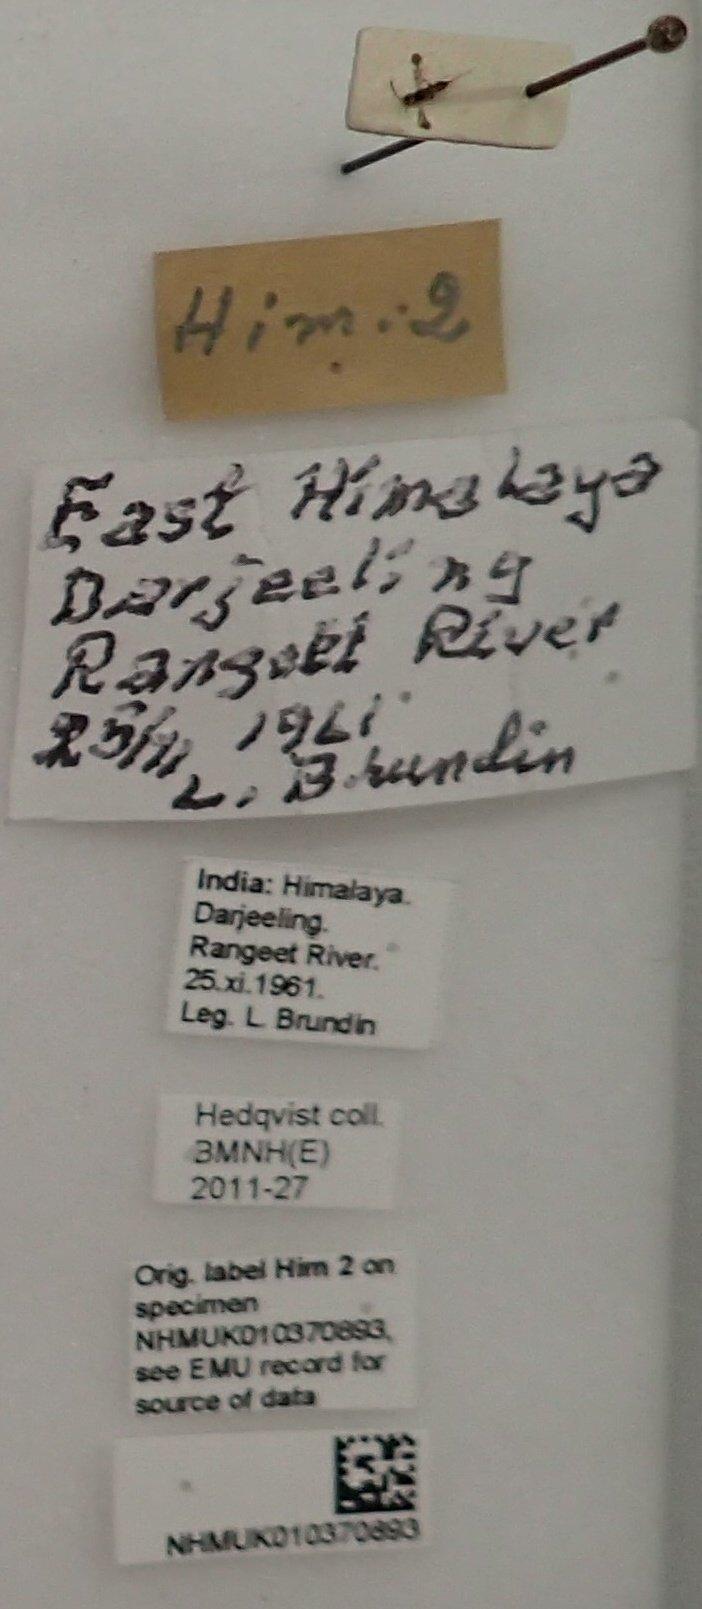 Him. 2
East Himalaya
Darjeeling
Rangeet River
25/xi 1961
L. Brundin
India: Himalaya.
Darjeeling.
Rangeet River.
25.xi.1961.
Leg. L. Brundin
Hedqvist coll.
BMNH(E)
2011-27
Orig. label Him 2 on
specimen
NHMUK010370893,
see EMU record for
source of data
NHMUK010370893